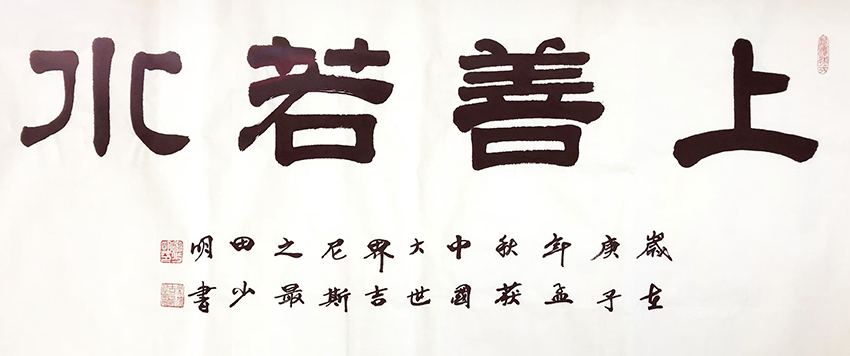 上善若水
歲在
庚子
年孟
秋获
中國
大世
界吉
尼斯
之最
田少
明書